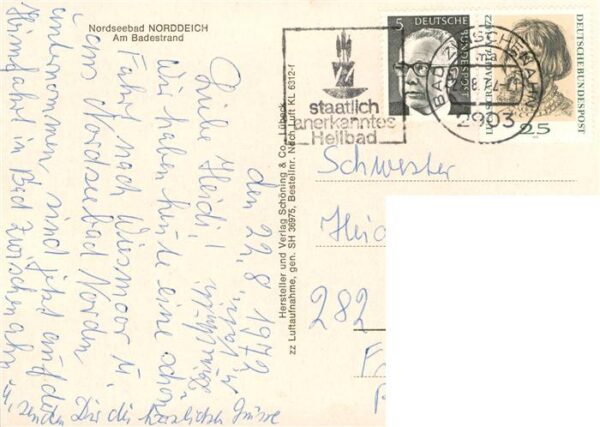 Nordseebad NORDDEICH
Am Badestrand
den 22. 8. 1972
Liebe Heidi!
Wir haben heute eine schöne
Fahrt nach Wiesmoor u.
ins Nordseebad Norden
unternommen, sind jetzt auf der
in Bad Zwischenahn
u. senden Dir die herzlichsten Grüsse
Hersteller und Verlag Schöning & Co., Lübeck
zz Luftaufnahme, gen. SH 36975, Bestellnr. Nach Luft KL 6312-f
staatlich
anerkanntes
Heilbad
BAD ZWISCHENAHN
2903
5
DEUTSCHE
BUNDESPOST
DEUTSCHE BUNDESPOST
25
Schwester
Heid
282